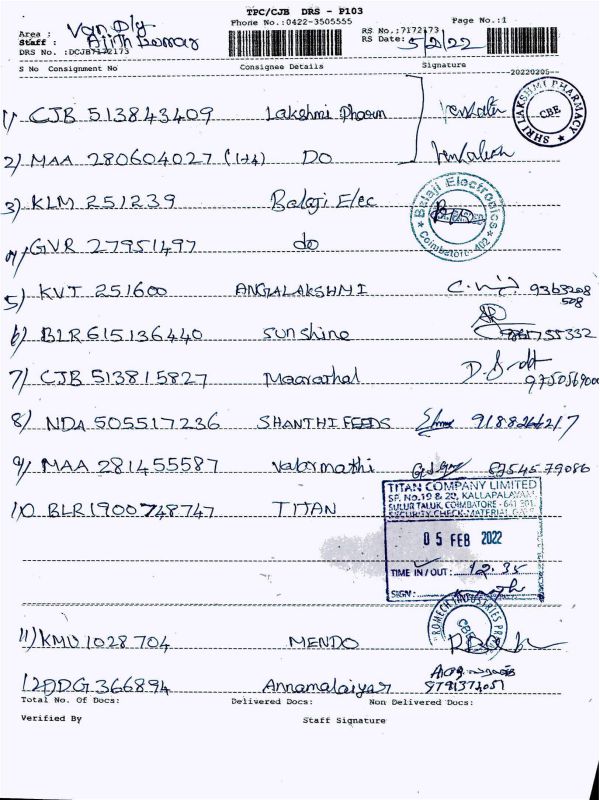 TPC/CJB DRS - P103
Phone No.:0422-3505555
Page No.:1
Area : Van Dly
Staff : Ajith Kumar
DRS No. :DCJB7172173
RS No.:7172173
RS Date: 5/2/22
S No Consignment No Consignee Details Signature
20220205
1) CJB 513843409 Lakshmi Pharm Venkatesh
SHRI LAKSHMI PHARMACY CBE
2) MAA 280604027 (1+4) DO Venkatesh
3) KLM 251239 Balaji Elec
Balaji Electronics Coimbatore-402
4) GVR 27951497 do
5) KVT 251600 ANGALAKSHMI 9363208
508
6) BLR 615136440 Sunshine
7) CJB 513815827 Maarathal
8) NDA 505517236 SHANTHI FEEDS
9) MAA 281455587 Valarmathi 87545 79086
10 BLR1900748747 TITAN
TITAN COMPANY LIMITED
SF. No.19 & 20, KALLAPALAYAM,
SULUR TALUK, COIMBATORE - 641 301.
SECURITY CHECK-MATERIAL GATE
05 FEB 2022
TIME IN / OUT : 12.35
SIGN :
ROMECH INDUSTRIES CBE
11) KMU1028704 MENDO
12) DG 366894 Annamalaiyar
Total No. Of Docs: Delivered Docs: Non Delivered Docs:
Verified By Staff Signature